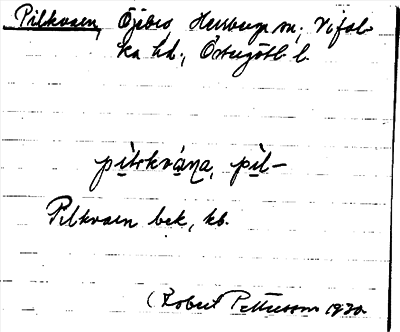 Pilkvaen, Öjebro, Herrberga sn; Vifol-
ka hd., Östergötl. l.
pìlskvá̱na, pìl-
Pilkvaen bek, kb.
(Robert Pettersson 1930